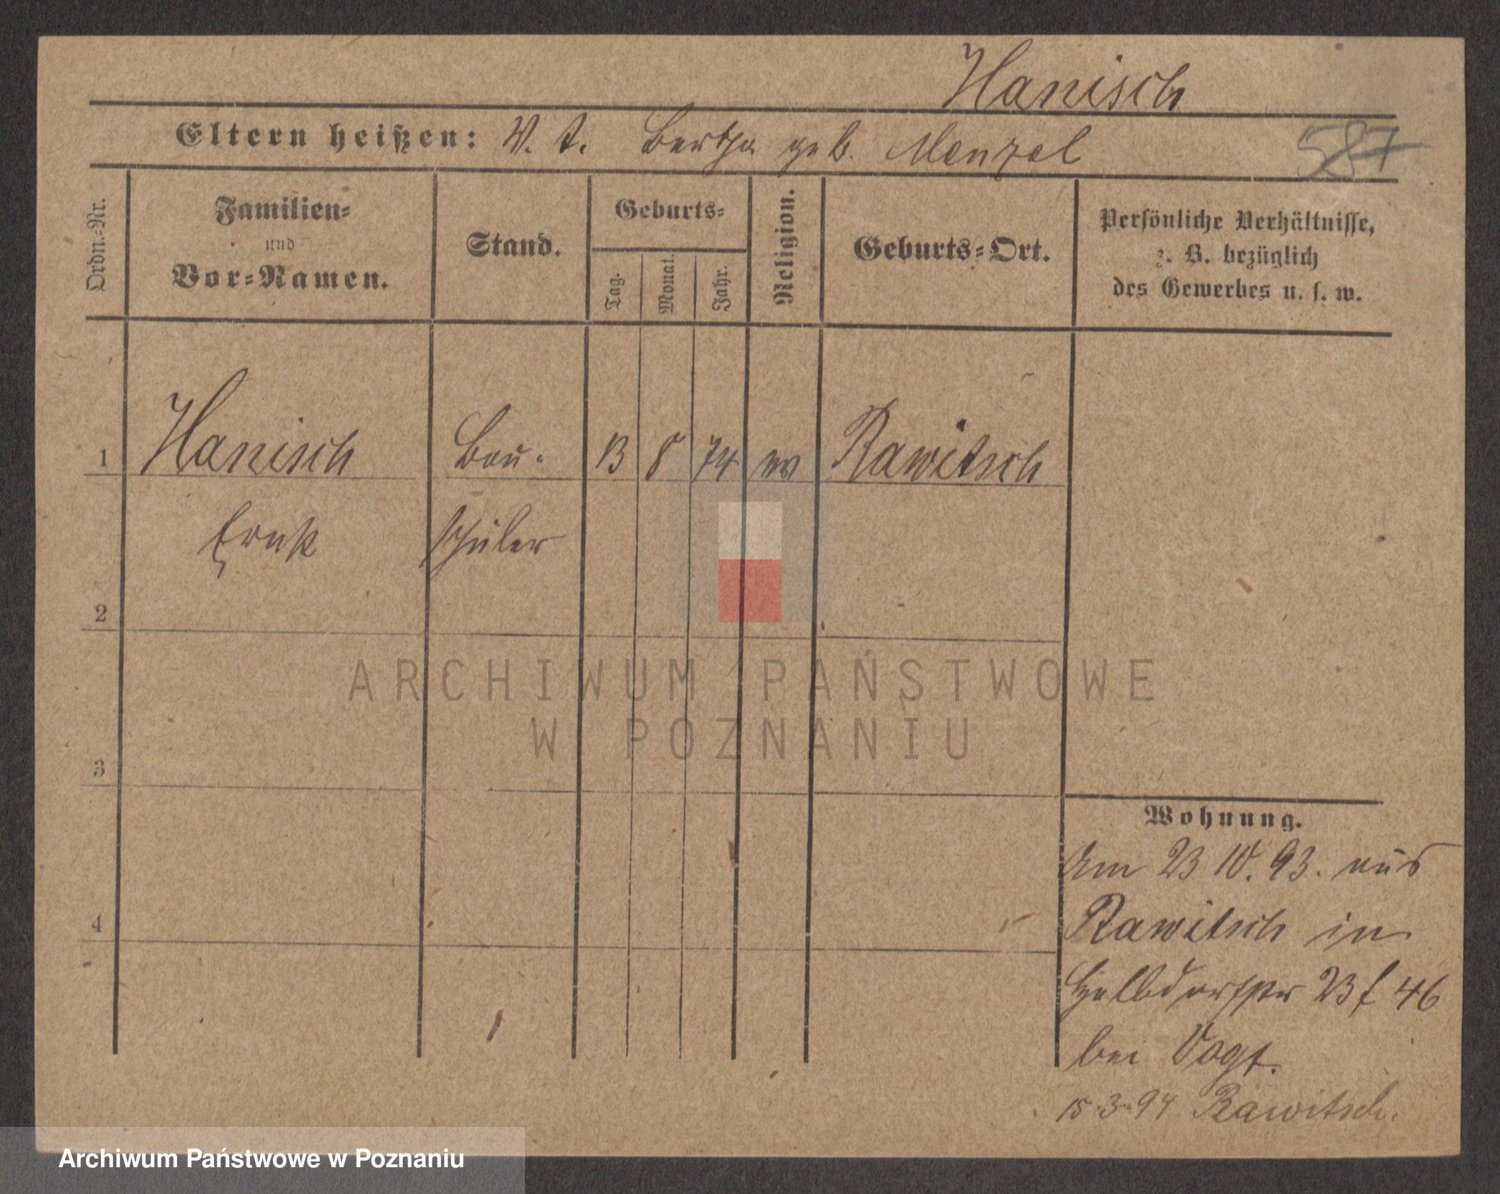 Hanisch
Eltern heißen: V. t. Bertha geb. Menzel
587
Ordn.-Nr.
Familien-
und
Vor-Namen.
Stand.
Geburts-
Tag.
Monat.
Jahr.
Religion.
Geburts-Ort.
Persönliche Verhältnisse,
z. B. bezüglich
des Gewerbes u. s. w.
1 Hanisch Bau- 13 8 74 ev Rawitsch
Ernst schüler
2
3
4
Wohnung.
Am 23 10. 93. aus
Rawitsch in
Halbdorfstr 23 f 46
bei Vogt.
15.3.94 Rawitsch.
ARCHIWUM PAŃSTWOWE
W POZNANIU
Archiwum Państwowe w Poznaniu